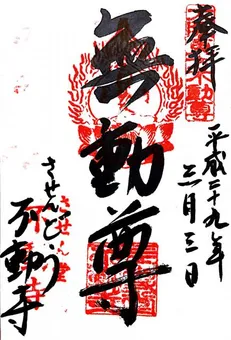 奉拝
平成二十九年
二月三日
無動尊
させんどう
不動寺